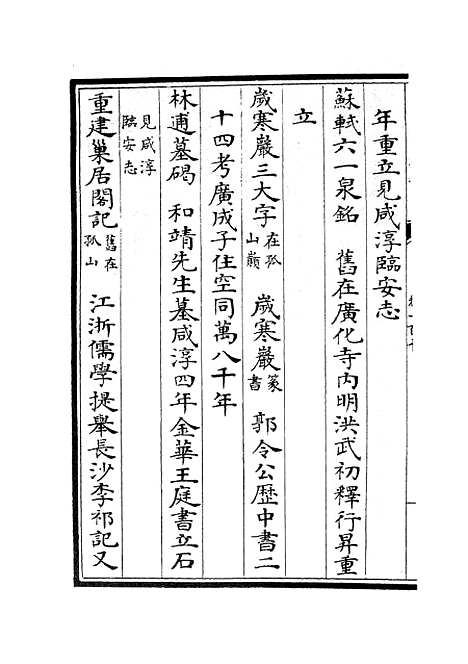 年重立見咸淳臨安志
蘇軾六一泉銘　舊在廣化寺内明洪武初釋行昇重
立
歲寒巖三大字在孤山巔　歲寒巖篆書　郭令公歷中書二
十四考廣成子住空同萬八千年
林逋墓碣　和靖先生墓咸淳四年金華王庭書立石
見咸淳臨安志
重建巢居閣記舊在孤山　江浙儒學提舉長沙李祁記又